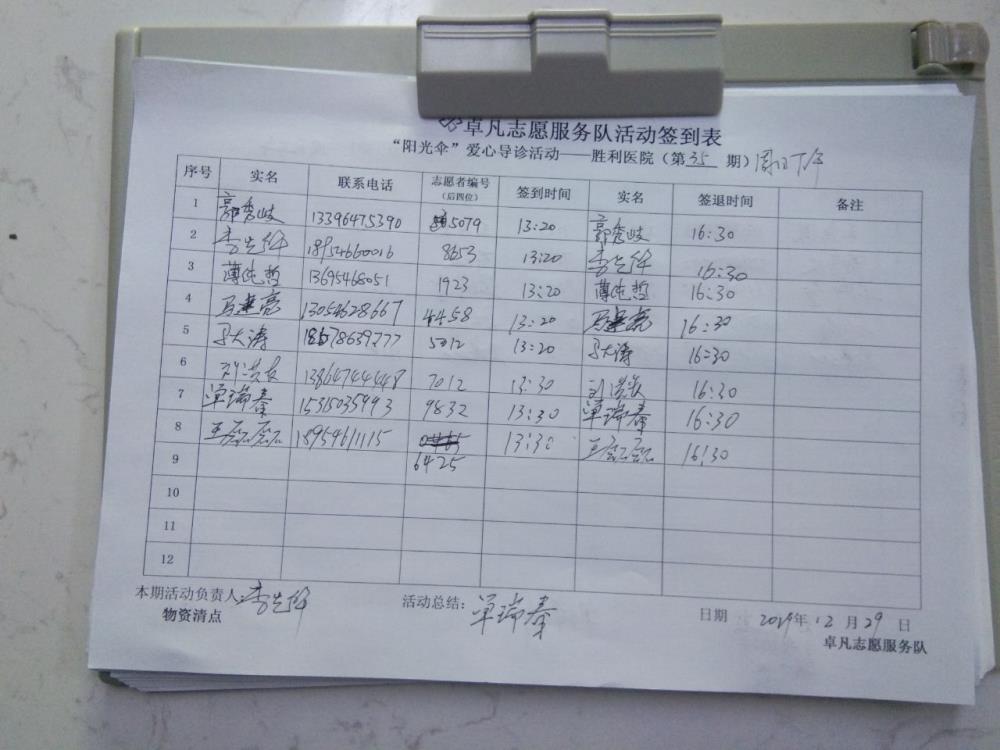 卓凡志愿服务队活动签到表
“阳光伞”爱心导诊活动——胜利医院（第 35 期）周日下午
序号 实名 联系电话 志愿者编号（后四位） 签到时间 实名 签退时间 备注
1 郭秀岐 13396475390 5079 13:20 郭秀岐 16:30
2 李先 18954660016 8653 13:20 李先 16:30
3 薄纯哲 13695468051 1923 13:20 薄纯哲 16:30
4 马建亮 13054628667 4458 13:20 马建亮 16:30
5 大涛 78639777 5012 13:20 大涛 16:30
6 刘洪 13864744448 7012 13:30 刘洪 16:30
7 单瑞奉 15315035993 9832 13:30 单瑞奉 16:30
8 王磊磊 18954611115 6425 13:30 王磊磊 16:30
9
10
11
12
本期活动负责人：李先 活动总结：单瑞奉 日期 2019年 12 月 29 日
物资清点 卓凡志愿服务队